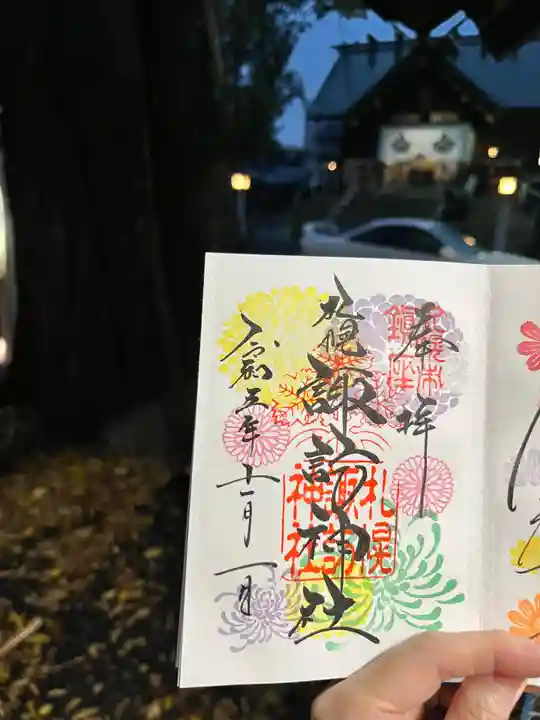 奉拝
札幌諏訪神社
札幌諏訪神社
令和三年十一月一日